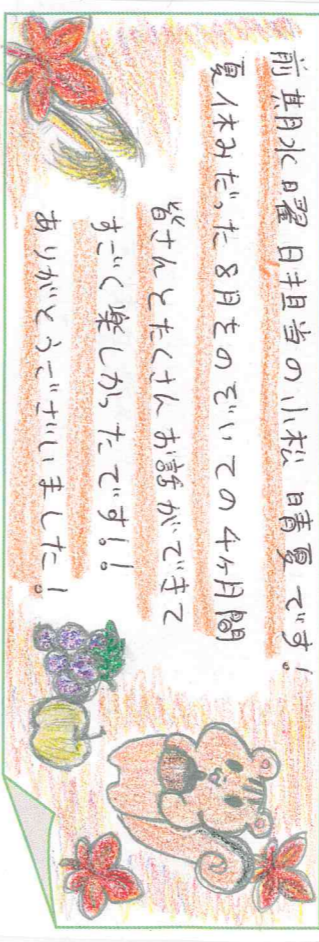 前期水曜日担当の小松 晴夏です!
夏休みだった8月をのぞいての4ヶ月間
皆さんとたくさんお話ができて
すごく楽しかったです!!
ありがとうございました!